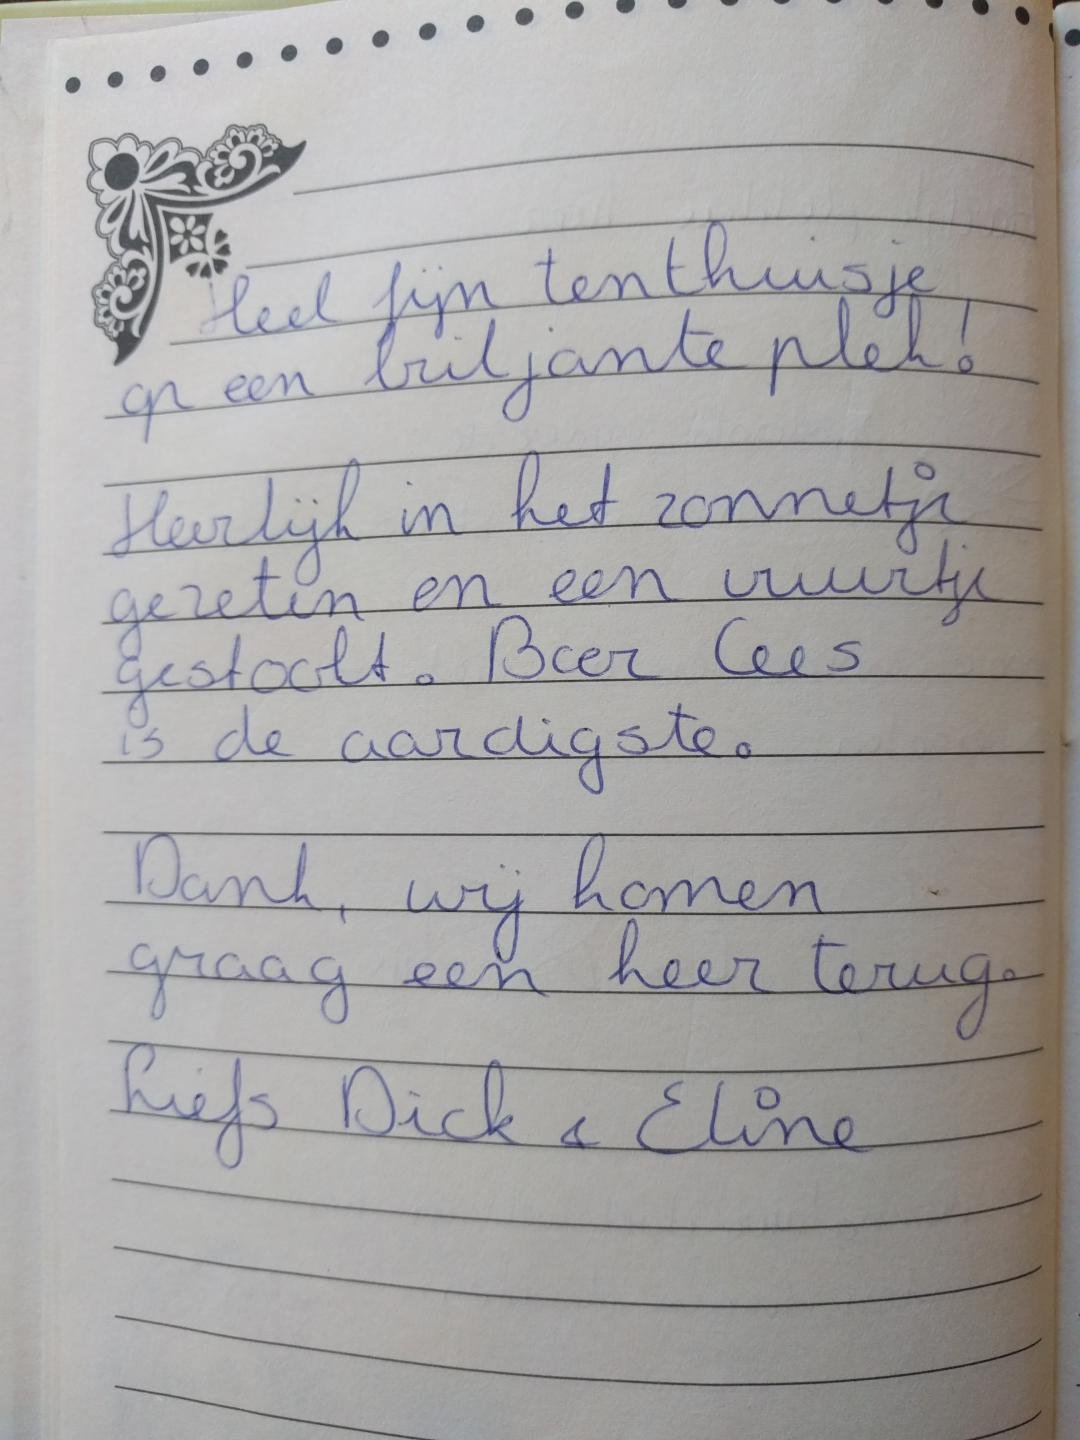 Heel fijn tenthuisje
op een briljante plek!
Heerlijk in het zonnetje
gezeten en een vuurtje
gestookt. Boer Cees
is de aardigste.
Dank, wij komen
graag een keer terug.
Liefs Dick & Eline